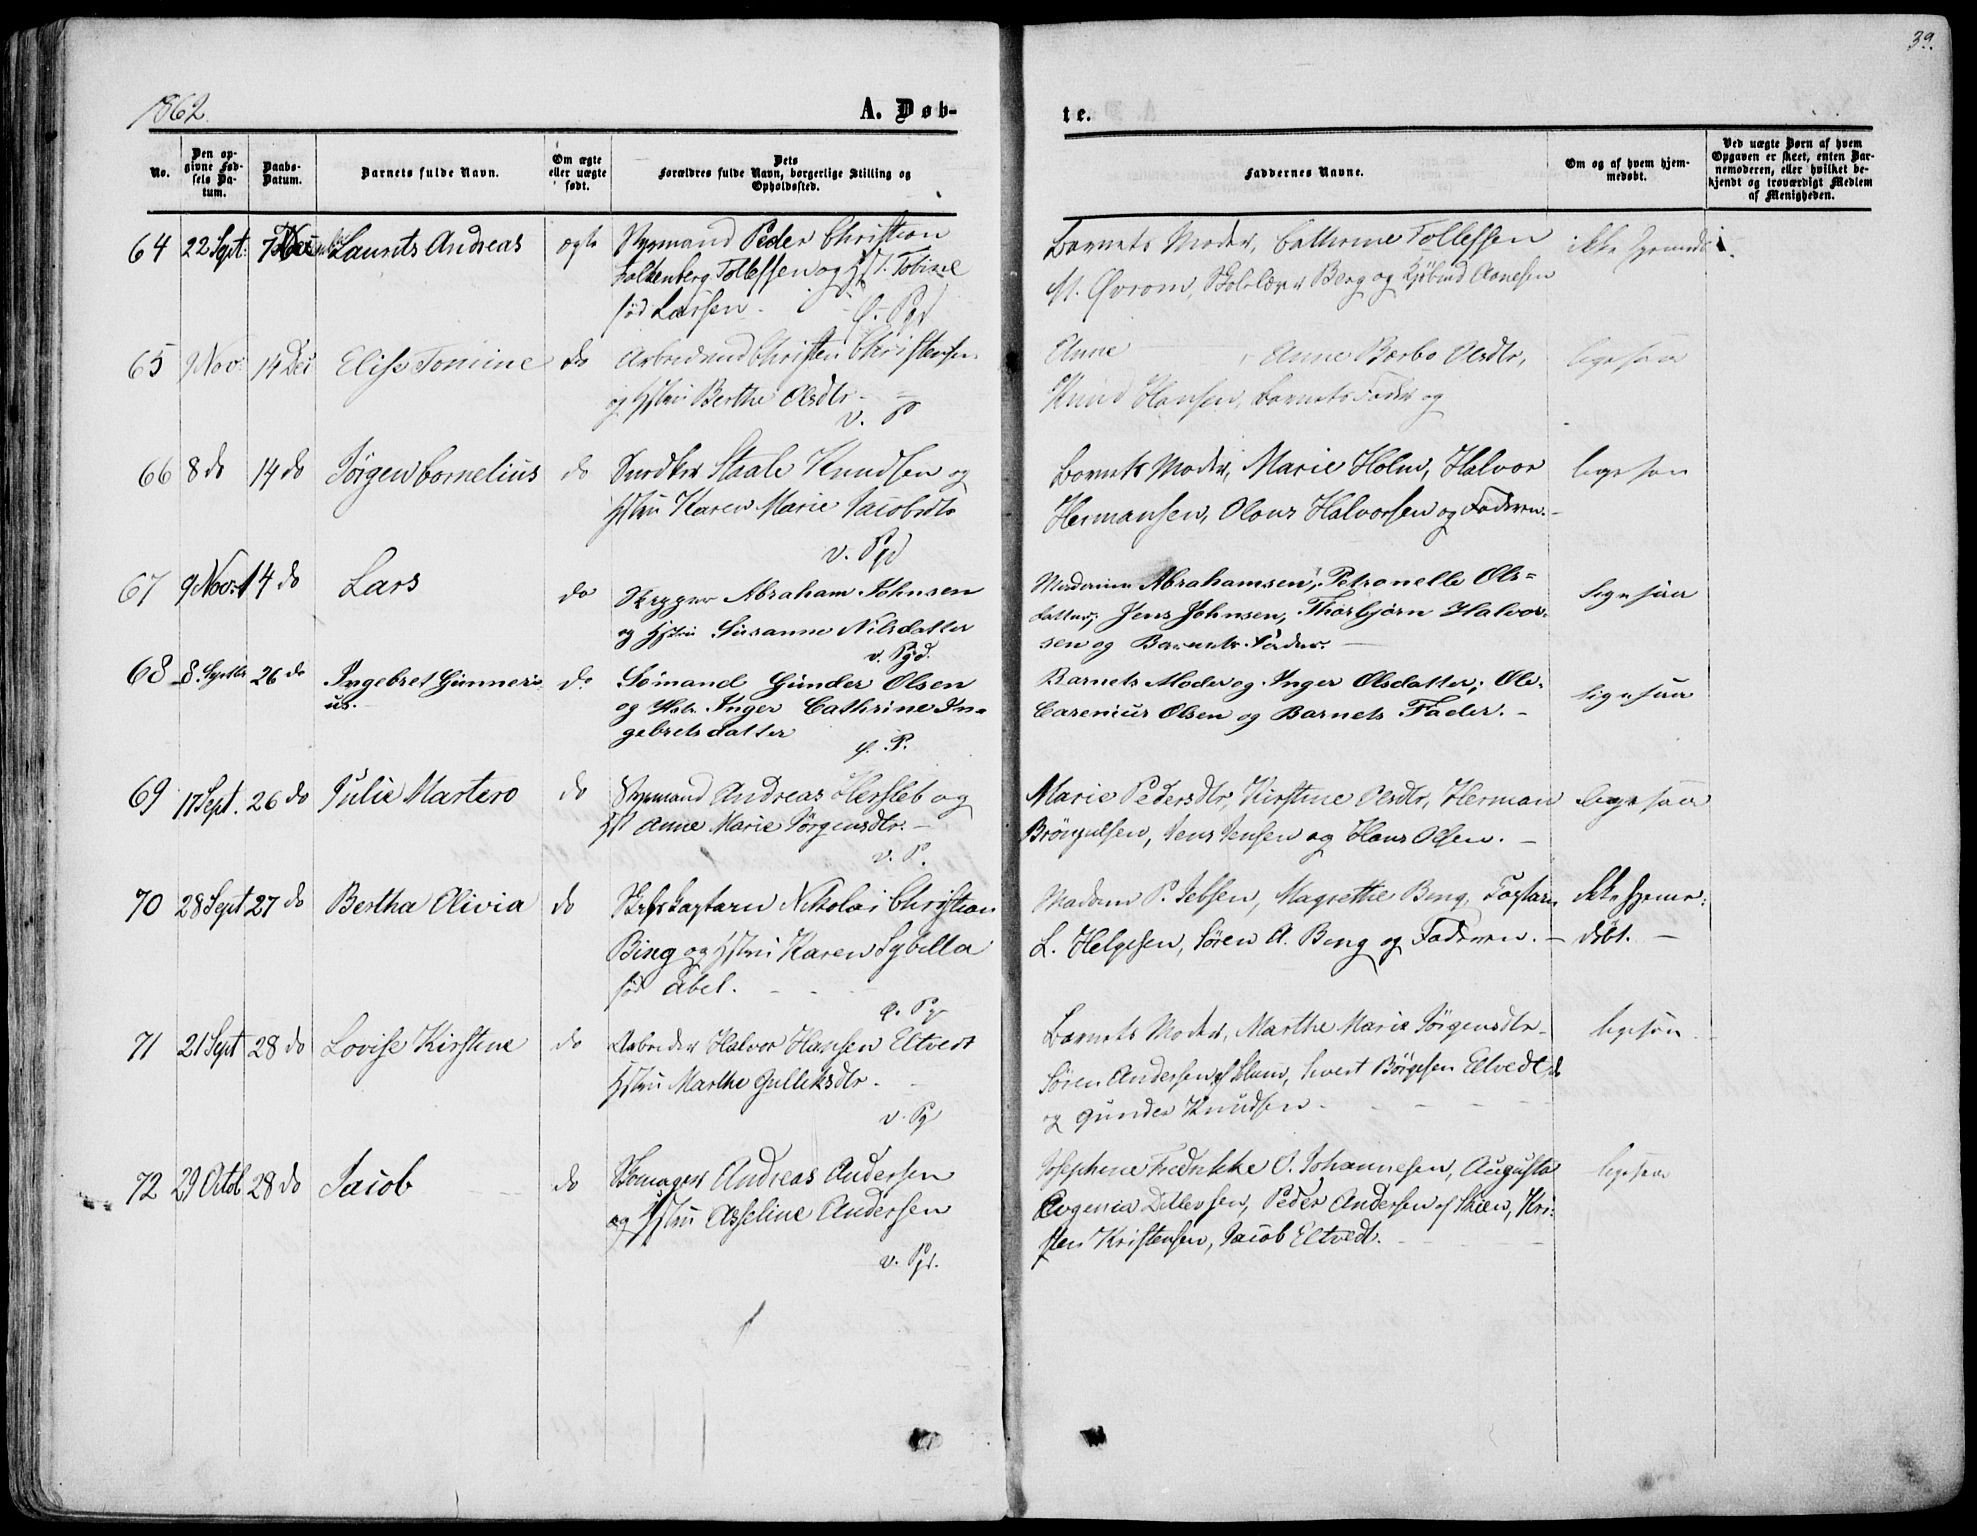 39.
1862.
A. Døb-
te.
No.
Den op-
givne Fød-
sels Da-
tum.
Daabs-
Datum.
Barnets fulde Navn.
Om ægte
eller uægte
født.
Dets
Forældres fulde Navn, borgerlige Stilling og
Opholdssted.
Faddernes Navne.
Om og af hvem hjem-
medøbt.
Ved uægte Børn af hvem
Opgaven er skeet, enten Bar-
nemoderen, eller hvilket be-
kjendt og troværdigt Medlem
af Menigheden.
64 22 Sept: 7 Laurits Andreas ægte Styrmand Peder Christian
Falkenberg Tollefsen og Tobine
fød Larsen
Barnets Moder, Cathrine Tollefsen
M. Øvrom, Skolelærer Berg og Aanesen
ikke
65 9 Nov: 14 Dec Elise Tomine do Christen Christensen
og Hstru Berthe Olsdtr.
v. P
Anne Anne Barbo Olsdtr,
Knud Hansen, Barnets Fader og
ligesaa
66 8 do 14 do Jørgen Cornelius do Snedker Staale Knudsen og
Hstru Karen Marie Jacobsdtr
v. Pgd
Barnets Moder, Marie Holm, Halvor
Hermansen, Olaus Halvorsen og Faderen.
ligesaa
67 9 Nov: 14 do Lars do Skipper Abraham Johnsen
og Hstru Susanne Nilsdatter
v. Pgd.
Abrahamsen, Petronelle Ols=
datter; Jens Johnsen, Thorbjørn Halvor-
sen og Barnets Fader.
ligesaa
68 8 Septbr 26 do Ingebret Gunneri
us. do Sømand Gunder Olsen
og Hstr. Inger Cathrine In=
gebretsdatter
v. P.
Barnets Moder og Inger Olsdatter; Ole
Carenius Olsen og Barnets Fader.
ligesaa
69 17 Sept. 26 do Julie Martero do Styrmand Andreas Hersleb og
Hst Anne Marie Jørgensdtr.
v. P.
Marie Pedersdtr, Kirstine Olsdtr, Herman
Jens Jensen og Hans Olsen.
ligesaa
70 28 Sept 27 do Bertha Olivia do Nikolai Christian
Bing og Hstru Karen Sybilla
fød Abel.
Madam P. Jebsen, Magrethe Beng,
L. Helgesen, Søren A. Beng og Faderen.
Ikke hjemme:
døbt.
71 21 Sept 28 do Lovise Kirstine do Arbeider Halvor Hansen Eltvedt
Hstru Marthe Gulleksdtr.
v. Pg
Barnets Moder, Marthe Marie Jørgensdtr
Søren Andersen af Slum, Børgesen Eltvedt
og Gunder Knudsen
ligesaa
72 29 Octob 28 do Jacob do Skomager Andreas Andersen
og Hstru Asseline Andersen
v. Pgd.
Josephine Fredrikke J. Johannesen, Augusta
Eugenia Ditlevsen, Peder Andersen af Skien, Kri-
sten Kristensen, Jacob Eltvedt.
ligesaa